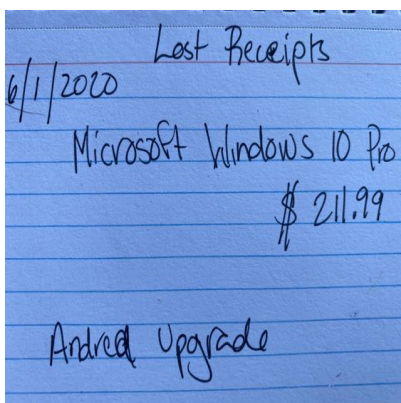 Lost Receipts
6/1/2020
Microsoft Windows 10 Pro
$ 211.99
Andrea Upgrade